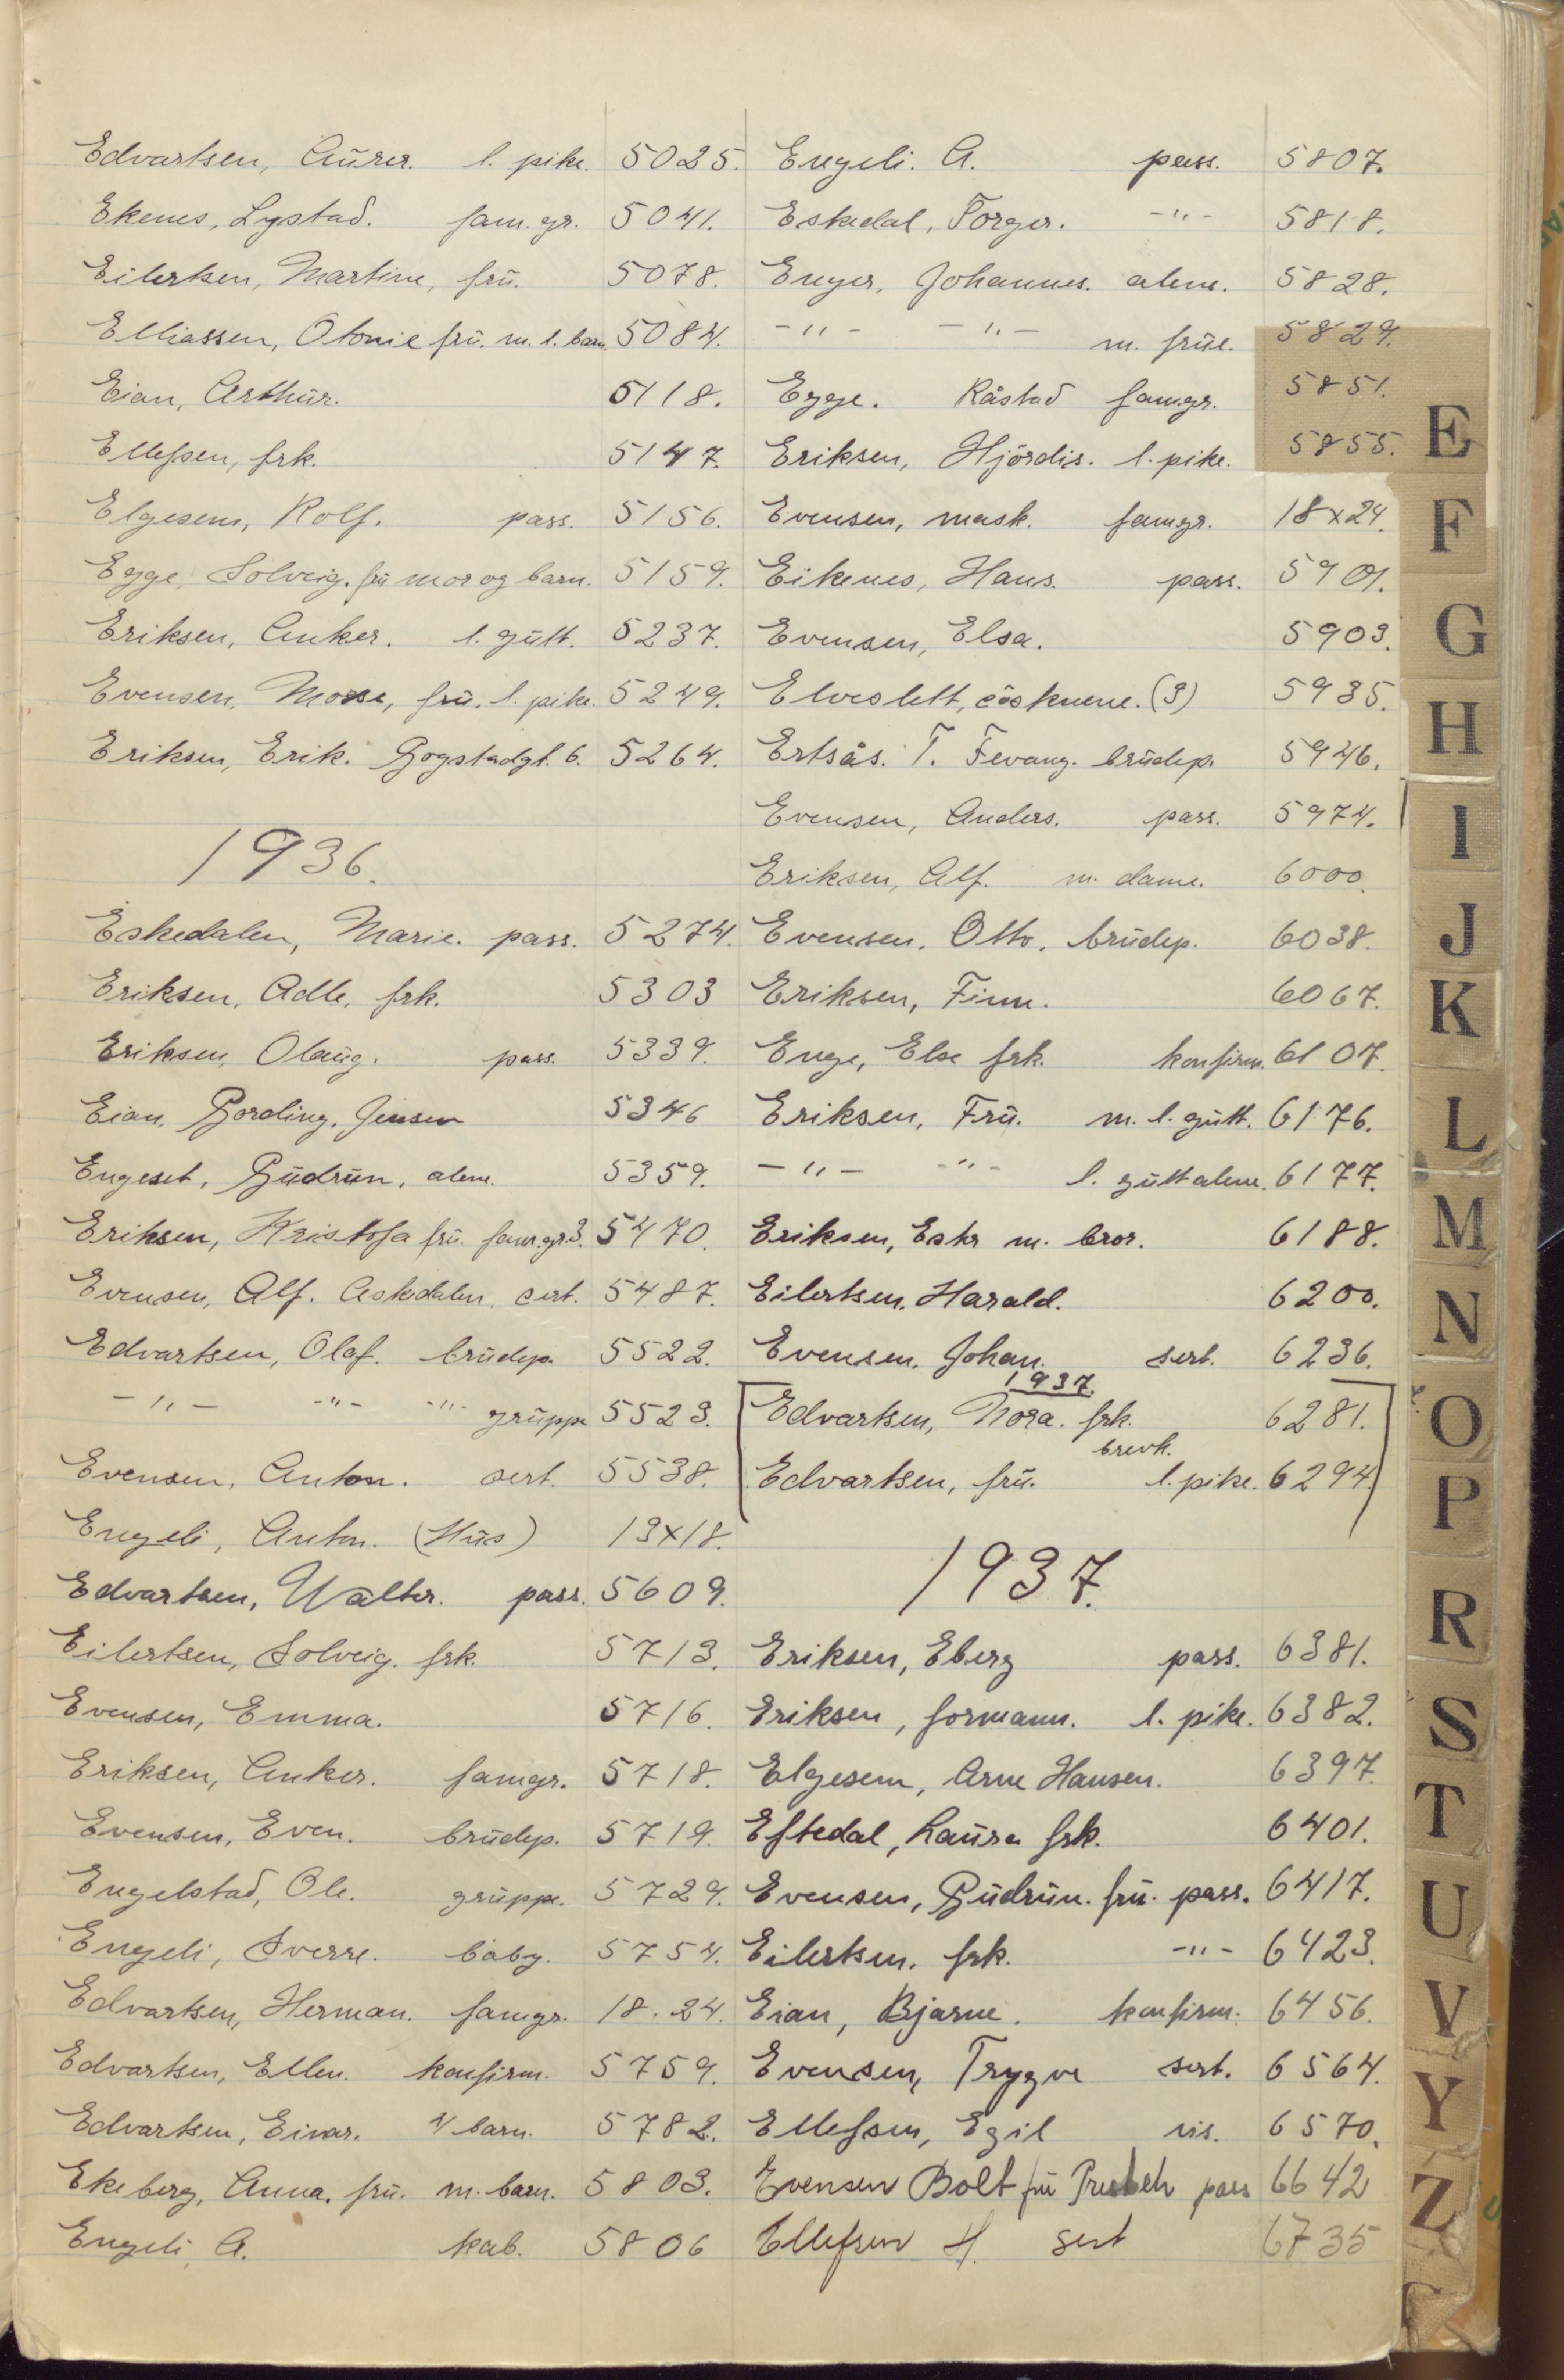 Edvartsen, Aurer. l. pike. 5025.
Ekenes, Lystad. fam. gr. 5041.
Eilertsen, Martine, frü. 5078.
Elliassen, Otonie frü. m. l. barn. 5084.
Eian, Arthür. 5118.
Ellefsen, frk. 5147.
Elgesem, Rolf. pass. 5156.
Egge, Solveig. frü mor og barn. 5159.
Eriksen, Anker. l. gütt. 5237.
Evensen, Mosse, frü. l. pike. 5249.
Eriksen, Erik. Gogstadgt. 6. 5264.
1936.
Eskedalen, Marie. pass. 5274.
Eriksen, Adle, frk. 5303
Eriksen, Olaüg. pass. 5339.
Eian, Gording, Jensen 5346
Engeset, Güdrün, alene. 5359.
Eriksen, Kristofa frü. fam.gr.3. 5470.
Evensen, Alf. Askedalen. sert. 5487.
Edvartsen, Olaf. brüdep. 5522.
-"- -"- -"- grüppe 5523.
Evensen, Anton. sert. 5538.
Engeli, Anton. (Hüs) 13x18.
Edvartsen, Walter. pass. 5609.
Eilertsen, Solveig. frk. 5713.
Evensen, Emma. 5716.
Eriksen, Anker. famgr. 5718.
Evensen, Even. brüdep. 5719.
Engelstad, Ole. grüppe. 5729.
Engeli, Sverre. baby. 5754.
Edvartsen, Herman. famgr. 18.24.
Edvartsen, Ellen. konfirm. 5759.
Edvartsen, Einar. 2/ barn. 5782.
Ekeberg, Anna, frü. m. barn. 5803.
Engeli A. kab. 5806
Engeli. A. pass. 5807.
Eskedal, Torger. -"- 5818.
Enger, Johannes. alene. 5828.
-"- -"- m. früe. 5829.
Egge. Råstad famgr. 5851.
Eriksen, Hjördis. l. pike. 5855.
Evensen, mask. famgr. 18x24.
Eikenes, Hans. pass. 5901.
Evensen, Elsa. 5903.
Elveslett, sösknene. (3) 5935.
Ertsås. T. Fevang. brüdep. 5946.
Evensen, Anders. pass. 5974.
Eriksen, Alf. m. dame. 6000.
Evensen, Otto, brüdep. 6038.
Eriksen, Finn. 6067.
Enge, Else frk. konfirm. 6107.
Eriksen, Frü. m. l. gütt. 6176.
-"- -"- l. gütt alene. 6177.
Eriksen, Ester m. bror. 6188.
Eilertsen, Harald. 6200.
Evensen, Johan. sert. 6236.
1937.
Edvartsen, Nora. frk. 6281.
brevk.
Edvartsen, frü. l. pike. 6294
1937.
Eriksen, Eberg pass. 6381.
Eriksen, formann. l. pike. 6382.
Elgesem, Arne Hansen. 6397.
Eftedal, Laüra frk. 6401.
Evensen, Güdrün. frü. pass. 6417.
Eilertsen, frk. -"- 6423.
Eian, Bjarne. konfirm. 6456.
Evensen, Trygve sert. 6564.
Ellefsen, Egil vis. 6570.
Evensen Bolt frü pass 6642
Ellefsen H. sert 6735
E
F
G
H
I
J
K
L
M
N
O
P
R
S
T
U
V
Y
Z